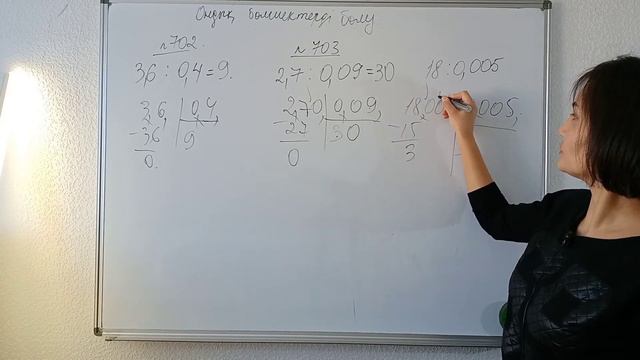 Ондық бөлшектерді бөлу
№702.
3,6 : 0,4 = 9.
3,6, | 0,4,
- 36 | 9
0.
№703
2,7 : 0,09 = 30
2,70, | 0,09,
- 27 | 30
0
18 : 0,005
18,0 005,
- 15
3